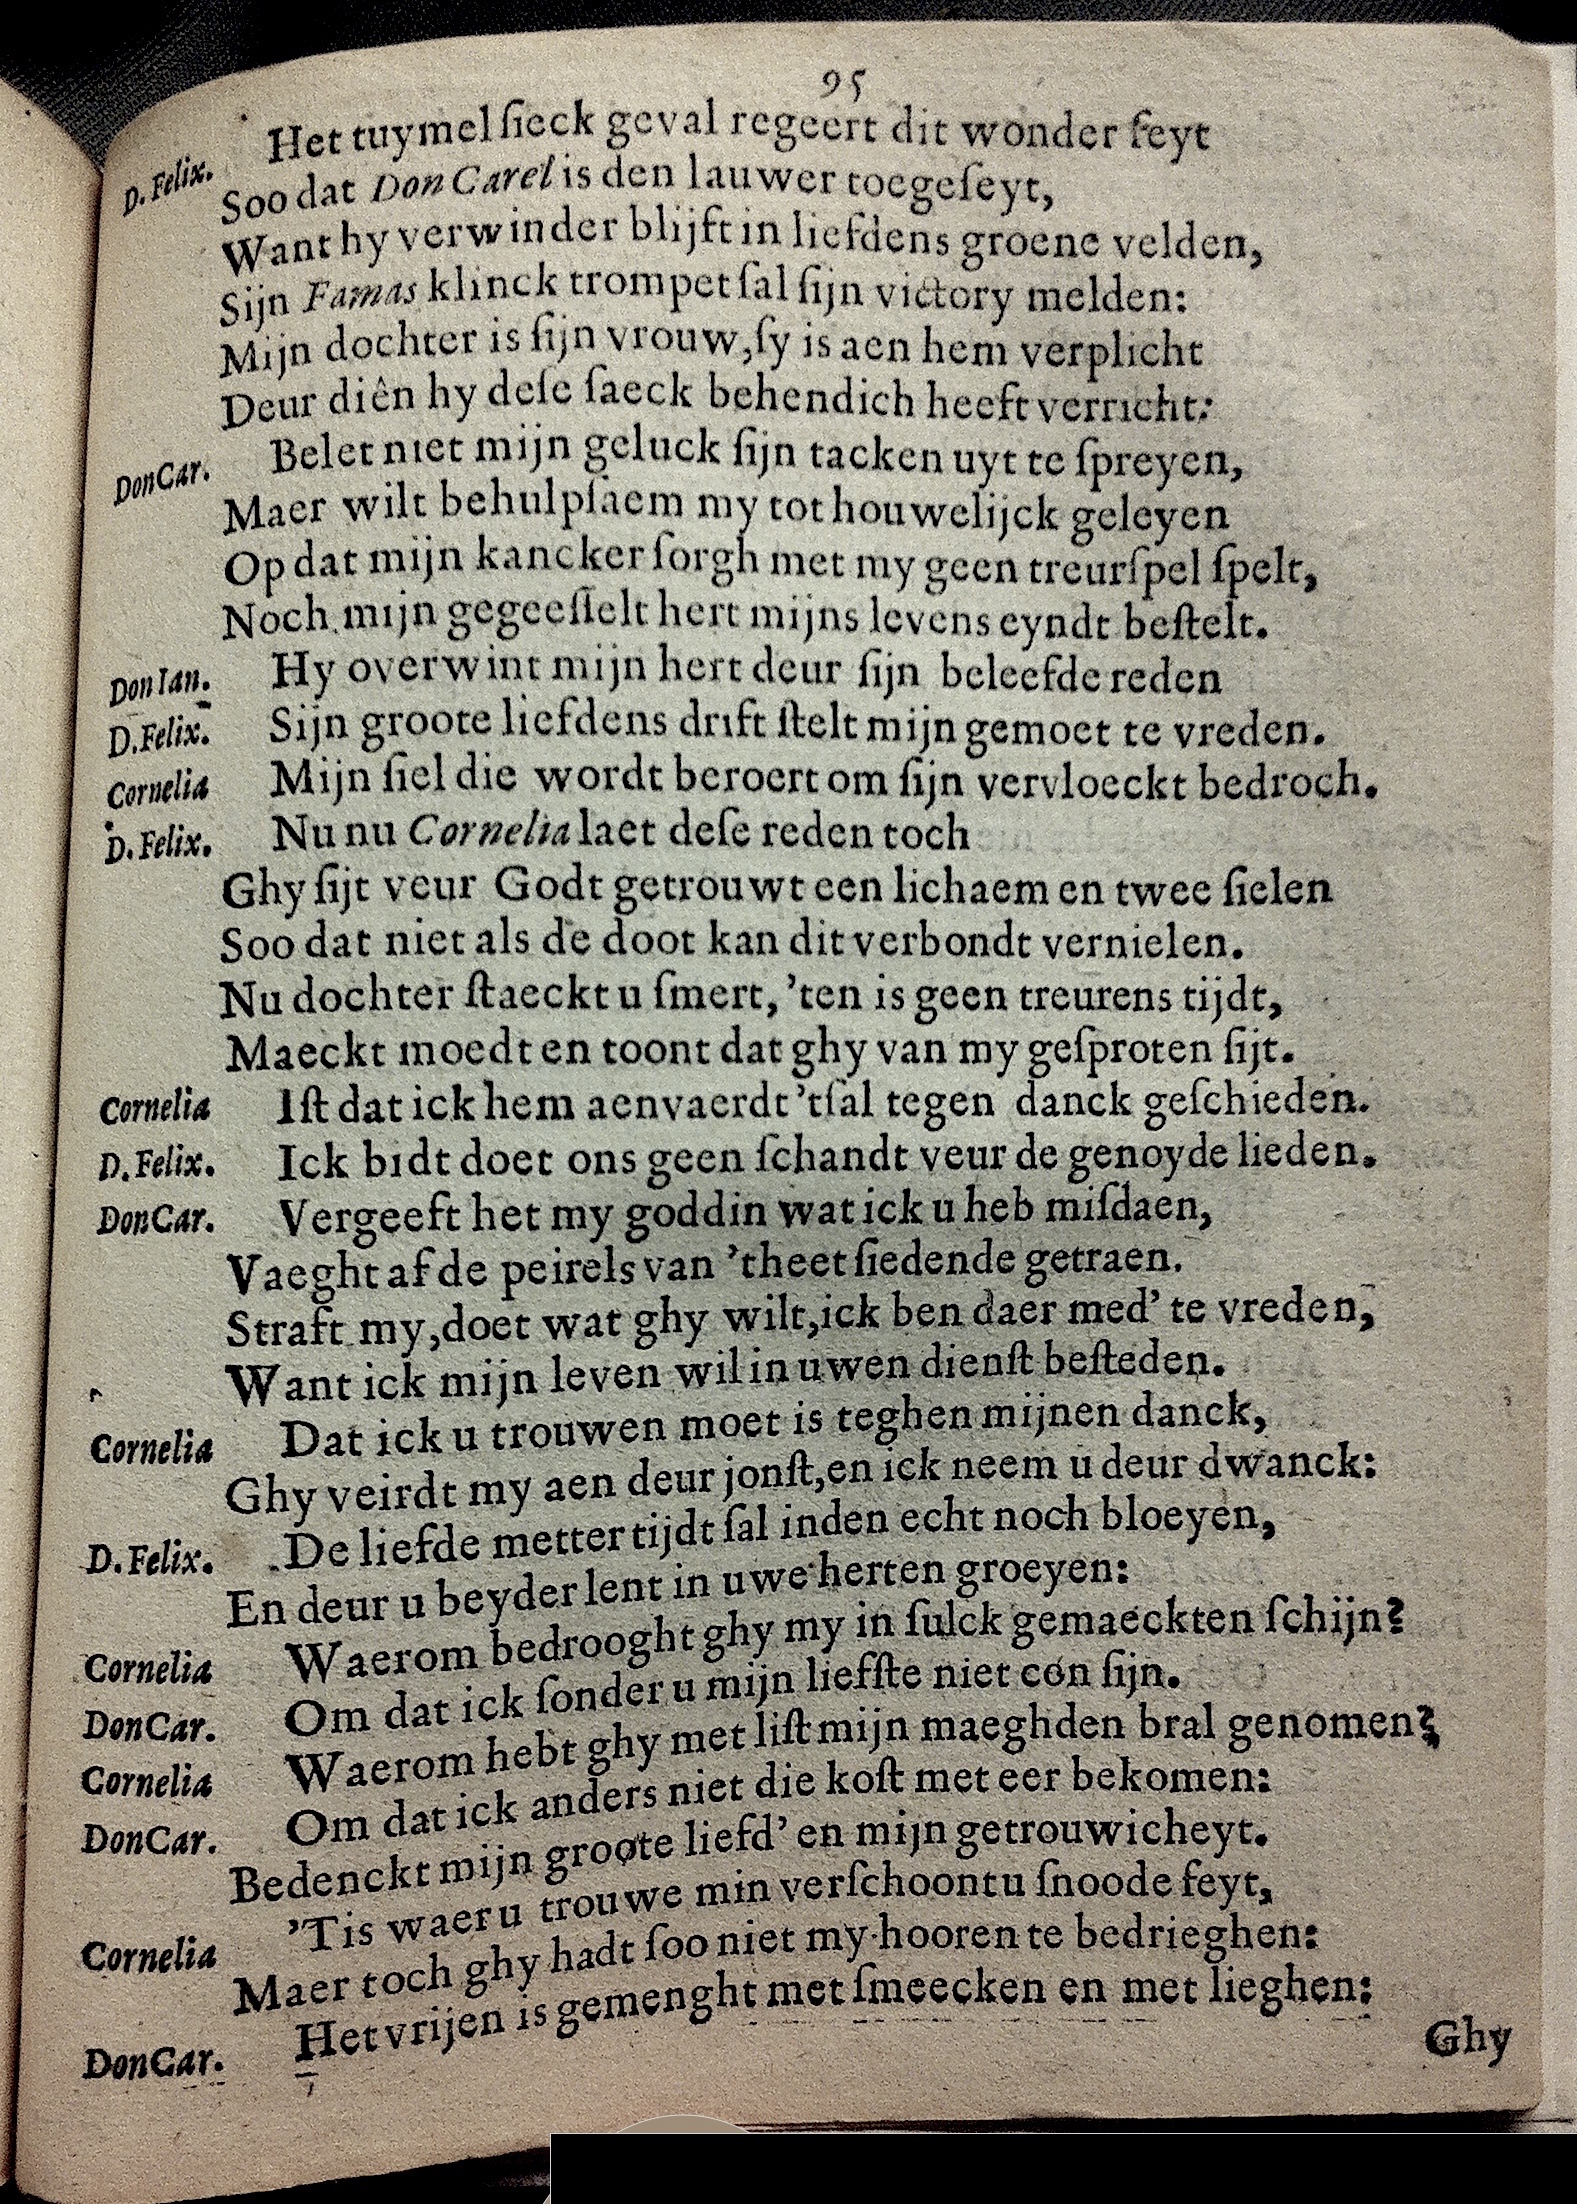 95
D. Felix. Het tuymel sieck geval regeert dit wonder feyt
Soo dat Don Carel is den lauwer toegeseyt,
Want hy verwinder blijft in liefdens groene velden,
Sijn Famas klinck trompet sal sijn victory melden:
Mijn dochter is sijn vrouw, sy is aen hem verplicht
Deur diên hy dese saeck behendich heeft verricht:
Don Car. Belet niet mijn geluck sijn tacken uyt te spreyen,
Maer wilt behulpsaem my tot houwelijck geleyen
Op dat mijn kancker sorgh met my geen treurspel spelt,
Noch mijn gegeesselt hert mijns levens eyndt bestelt.
Don Ian. Hy overwint mijn hert deur sijn beleefde reden
D. Felix. Sijn groote liefdens drift stelt mijn gemoet te vreden.
Cornelia Mijn siel die wordt beroert om sijn vervloeckt bedroch.
D. Felix. Nu nu Cornelia laet dese reden toch
Ghy sijt veur Godt getrouwt een lichaem en twee sielen
Soo dat niet als de doot kan dit verbondt vernielen.
Nu dochter staeckt u smert, 'ten is geen treurens tijdt,
Maeckt moedt en toont dat ghy van my gesproten sijt.
Cornelia Ist dat ick hem aenvaerdt 'tsal tegen danck geschieden.
D. Felix. Ick bidt doet ons geen schandt veur de genoyde lieden.
Don Car. Vergeeft het my goddin wat ick u heb misdaen,
Vaeght af de peirels van 'theet siedende getraen.
Straft my, doet wat ghy wilt, ick ben daer med' te vreden,
Want ick mijn leven wil in uwen dienst besteden.
Cornelia Dat ick u trouwen moet is teghen mijnen danck,
Ghy veirdt my aen deur jonst, en ick neem u deur dwanck:
D. Felix. De liefde metter tijdt sal inden echt noch bloeyen,
En deur u beyder lent in uwe herten groeyen:
Cornelia Waerom bedrooght ghy my in sulck gemaeckten schijn?
Don Car. Om dat ick sonder u mijn liefste niet con sijn.
Cornelia Waerom hebt ghy met list mijn maeghden bral genomen?
Don Car. Om dat ick anders niet die kost met eer bekomen:
Bedenckt mijn groote liefd' en mijn getrouwicheyt.
Cornelia 'Tis waer u trouwe min verschoont u snoode feyt,
Maer toch ghy hadt soo niet my hooren te bedrieghen:
Don Car. Het vrijen is gemenght met smeecken en met lieghen:
Ghy